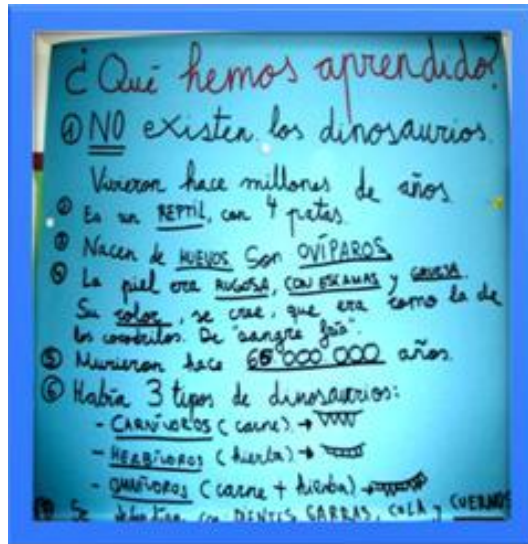 ¿Qué hemos aprendido?
① NO existen los dinosaurios.
Vivieron hace millones de años
② Es un REPTIL, con 4 patas.
③ Nacen de HUEVOS Son OVÍPAROS
④ La piel era RUGOSA, CON ESCAMAS y GRUESA.
Su color, se cree, que era como la de
los cocodrilos. De "sangre fría".
⑤ Murieron hace 65 000 000 años.
⑥ Había 3 tipos de dinosaurios:
- CARNÍVOROS (carne) →
- HERBÍVOROS (hierba) →
- OMNÍVOROS (carne + hierba) →
Se defendían con DIENTES, GARRAS, COLA y CUERNOS